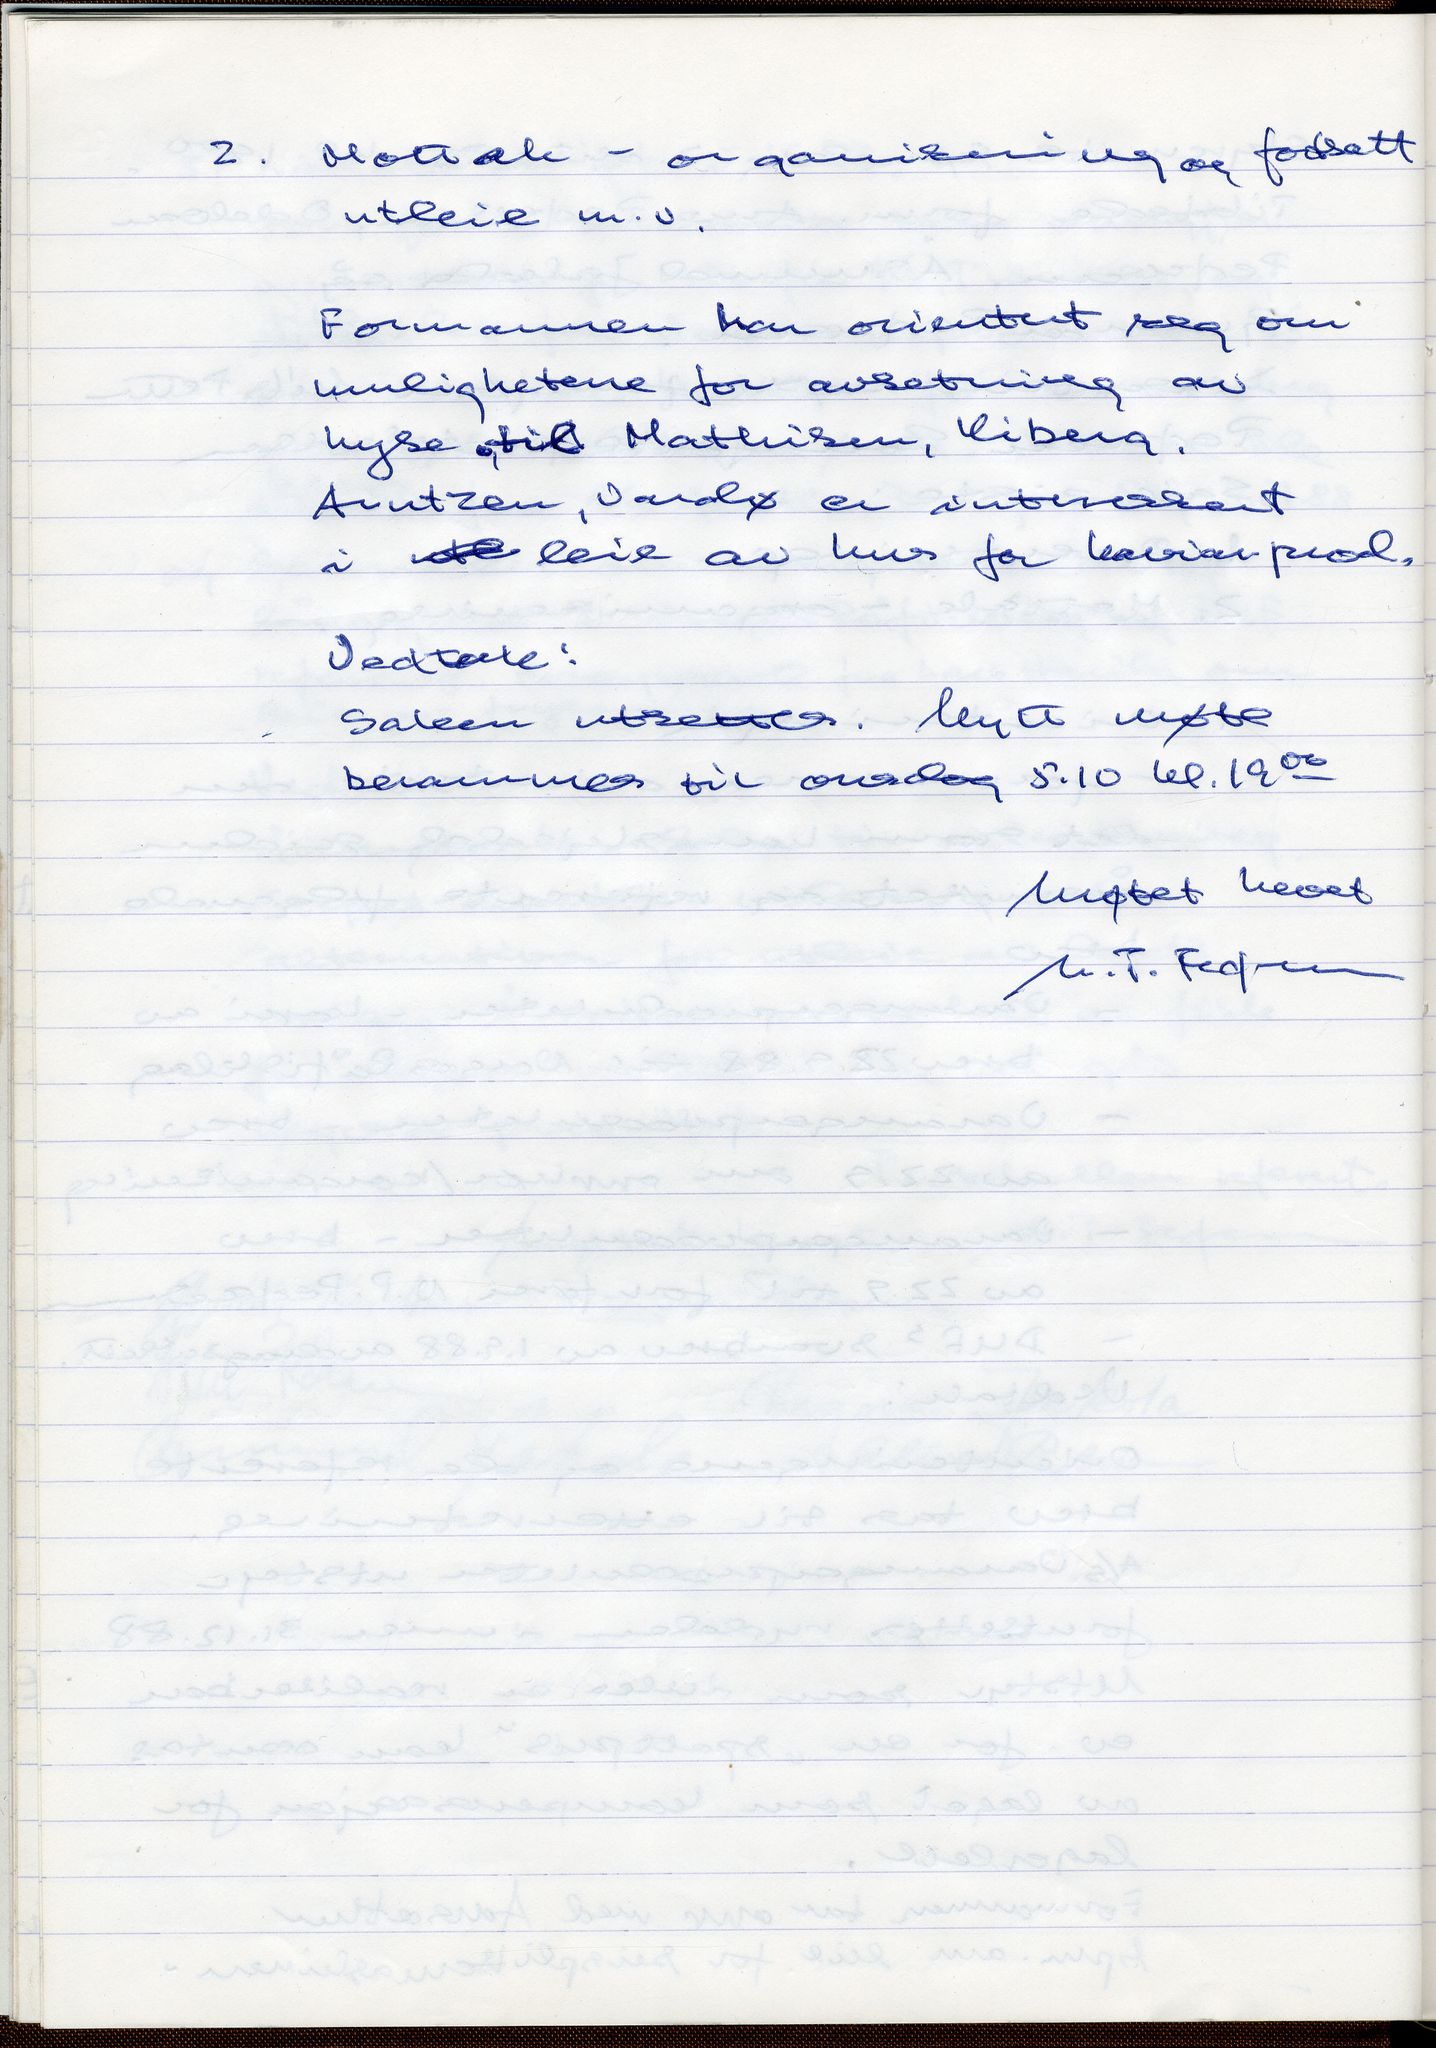 2. Mottak - organisering og fodsatt
utleie m.v.
Formannen har orientert seg om
mulighetene for avsetning av
hyse til Mathisen, Kiberg.
Arntzen, Vardø er interessert
i leie av hus for kaviarprod.
Vedtak:
Saken utsettes. Nytt møte
berammes til onsdag 5.10 kl. 19 00
Møtet hevet